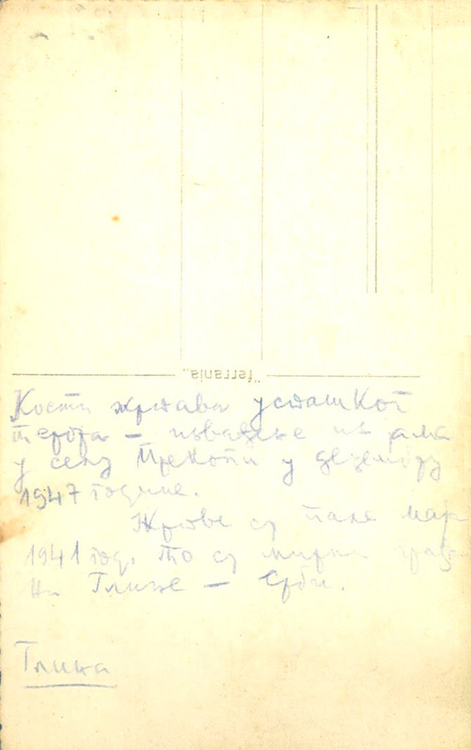 "ferrania"
Кости жртава усташког
терора – извађене из јама
у селу Прекопи у децембру
1947 године.
Жртве су пале
1941 год. То су мирни
Глине – Срби.
Глина